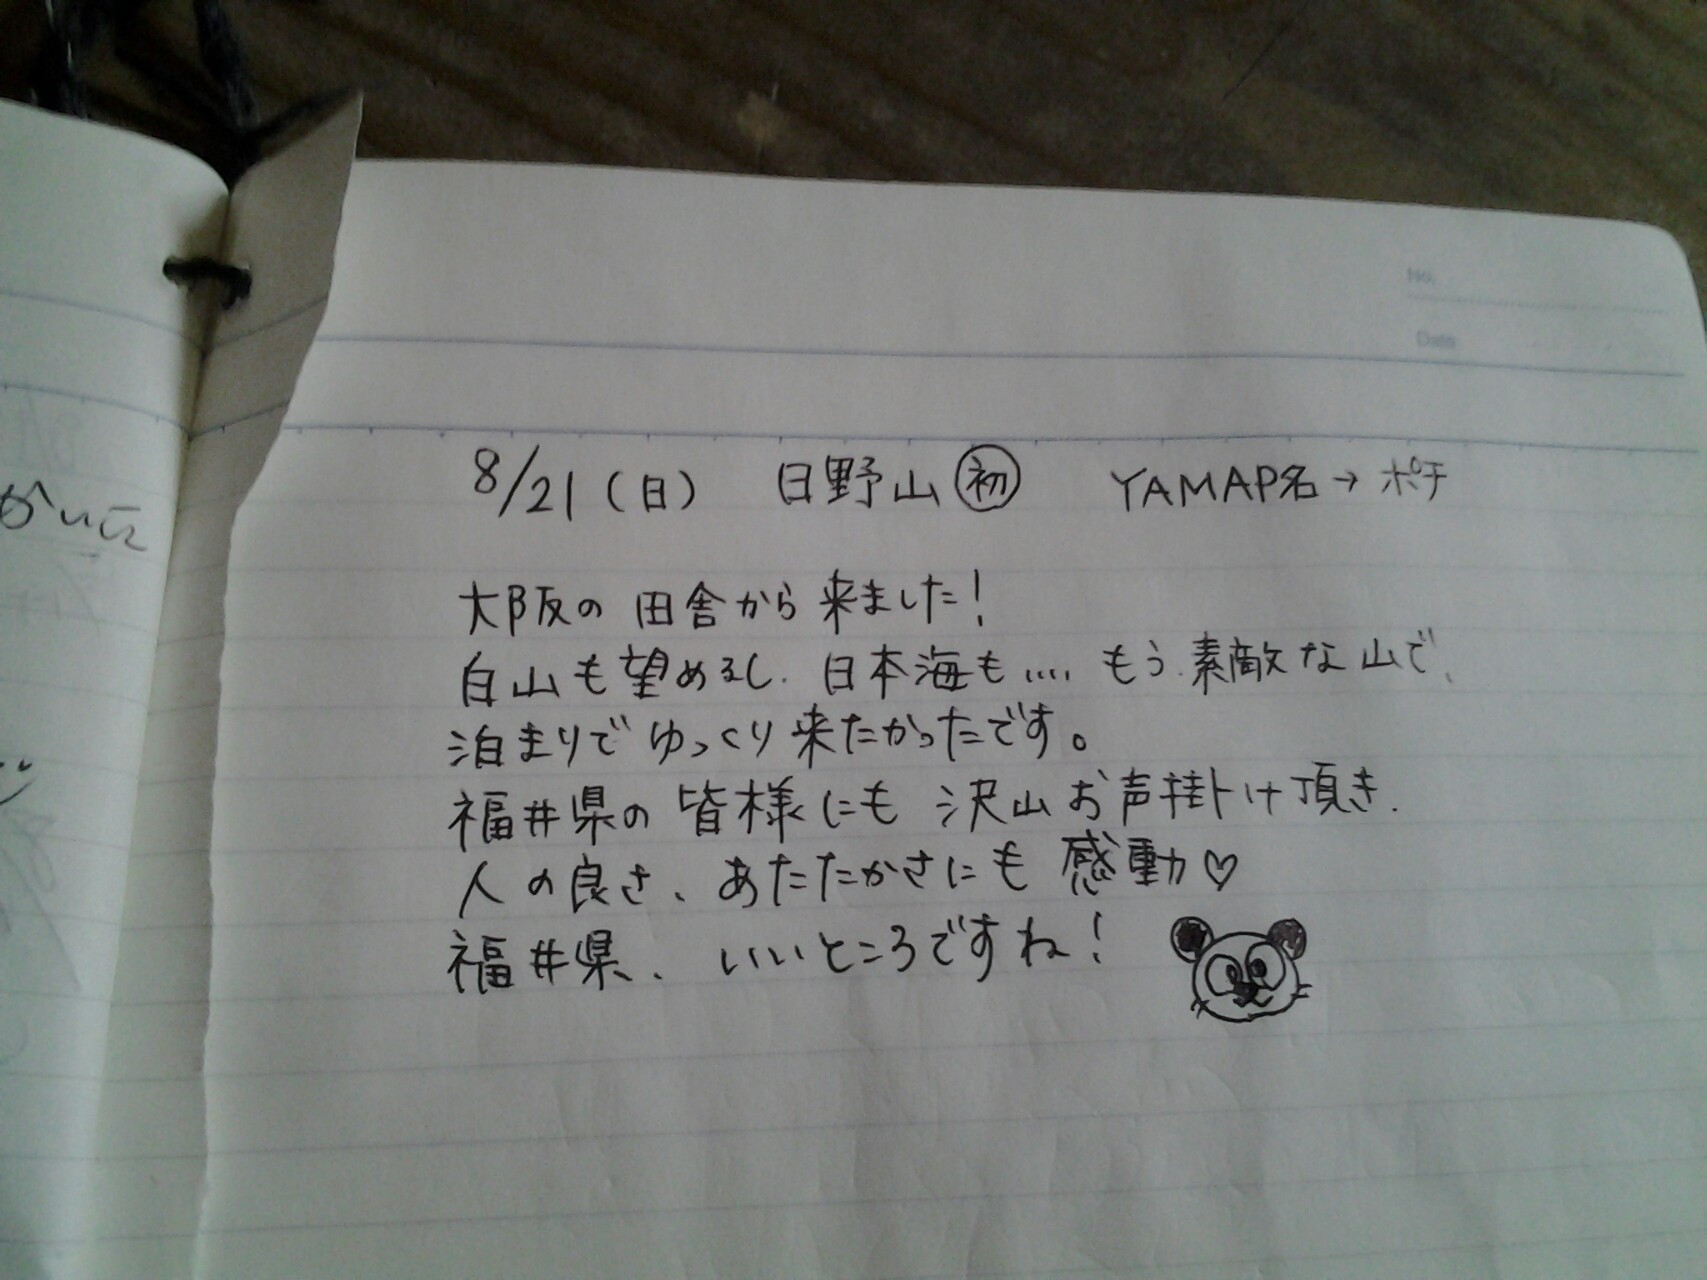 No.
Date
8/21(日) 日野山 初 YAMAP名→ポチ
大阪の田舎から来ました!
白山も望めるし、日本海も.... もう、素敵な山で、
泊まりでゆっくり来たかったです。
福井県の皆様にも沢山お声掛け頂き、
人の良さ、あたたかさにも感動♡
福井県、いいところですね!